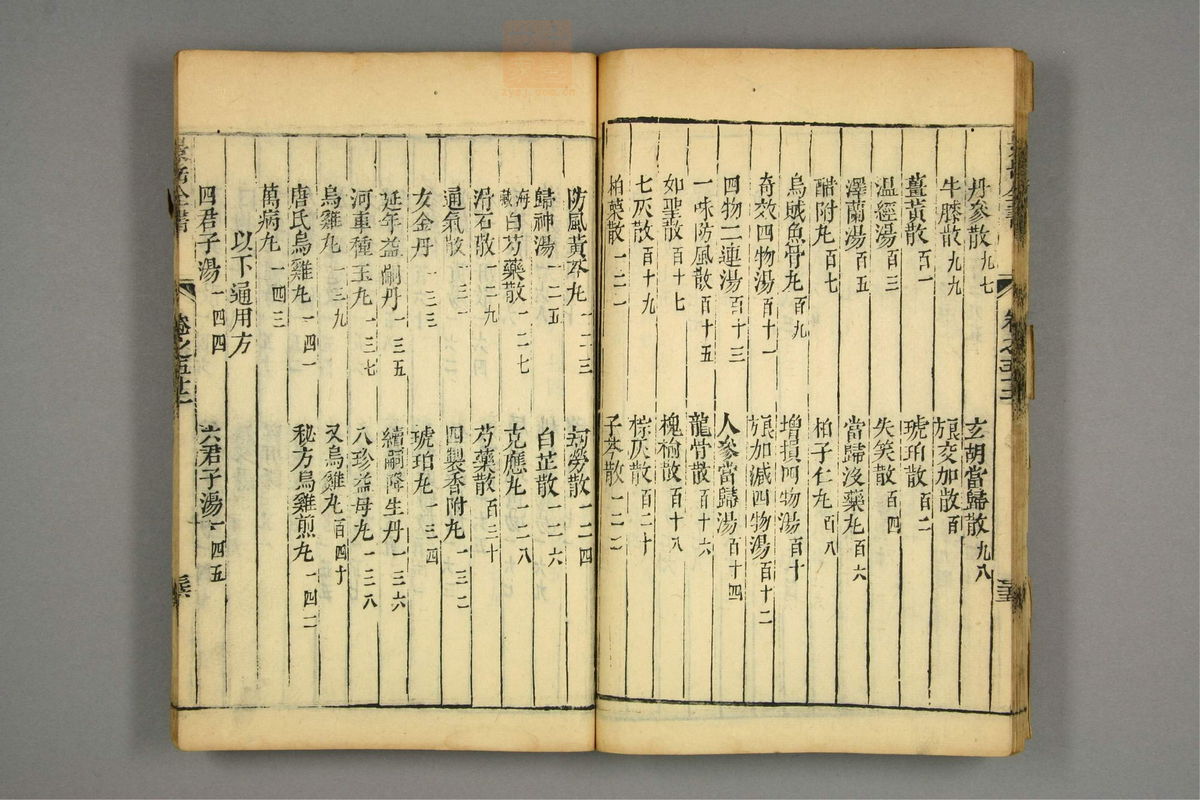 景岳全書 卷之五十三
丹參散九七 玄胡當歸散九八
牛膝散九九 良方交加散百
薑黃散百一 琥珀散百二
温經湯百三 失笑散百四
澤蘭湯百五 當歸沒藥丸百六
醋附丸百七 柏子仁丸百八
烏賊魚骨丸百九 增損四物湯百十
奇效四物湯百十一 良方加減四物湯百十二
四物二連湯百十三 人參當歸湯百十四
一味防風散百十五 龍骨散百十六
如聖散百十七 槐榆散百十八
七灰散百十九 棕灰散百二十
柏葉散一二一 子芩散一二二
防風黃芩丸一二三 芎藭散一二四
歸神湯一二五 白芷散一二六
海藏白芍藥散一二七 克應丸一二八
滑石散一二九 芍藥散百三十
通氣散一三一 四製香附丸一三二
女金丹一三三 琥珀丸一三四
延年益嗣丹一三五 續嗣降生丹一三六
河車種玉丸一三七 八珍益母丸一三八
烏雞丸一三九 又烏雞丸百四十
唐氏烏雞丸一四一 秘方烏雞煎丸一四二
萬病丸一四三
以下通用方
四君子湯一四四 六君子湯一四五
景岳全書 卷之五十三